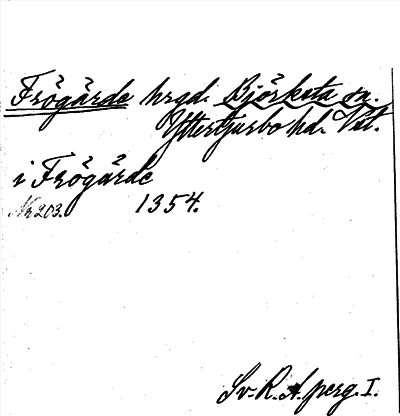 Frögärde hrgd. Björksta sn.
Yttertjurbo hd. Vst.
i Frögärde
Nr 203. 1354.
Sv. R. A. perg. I.